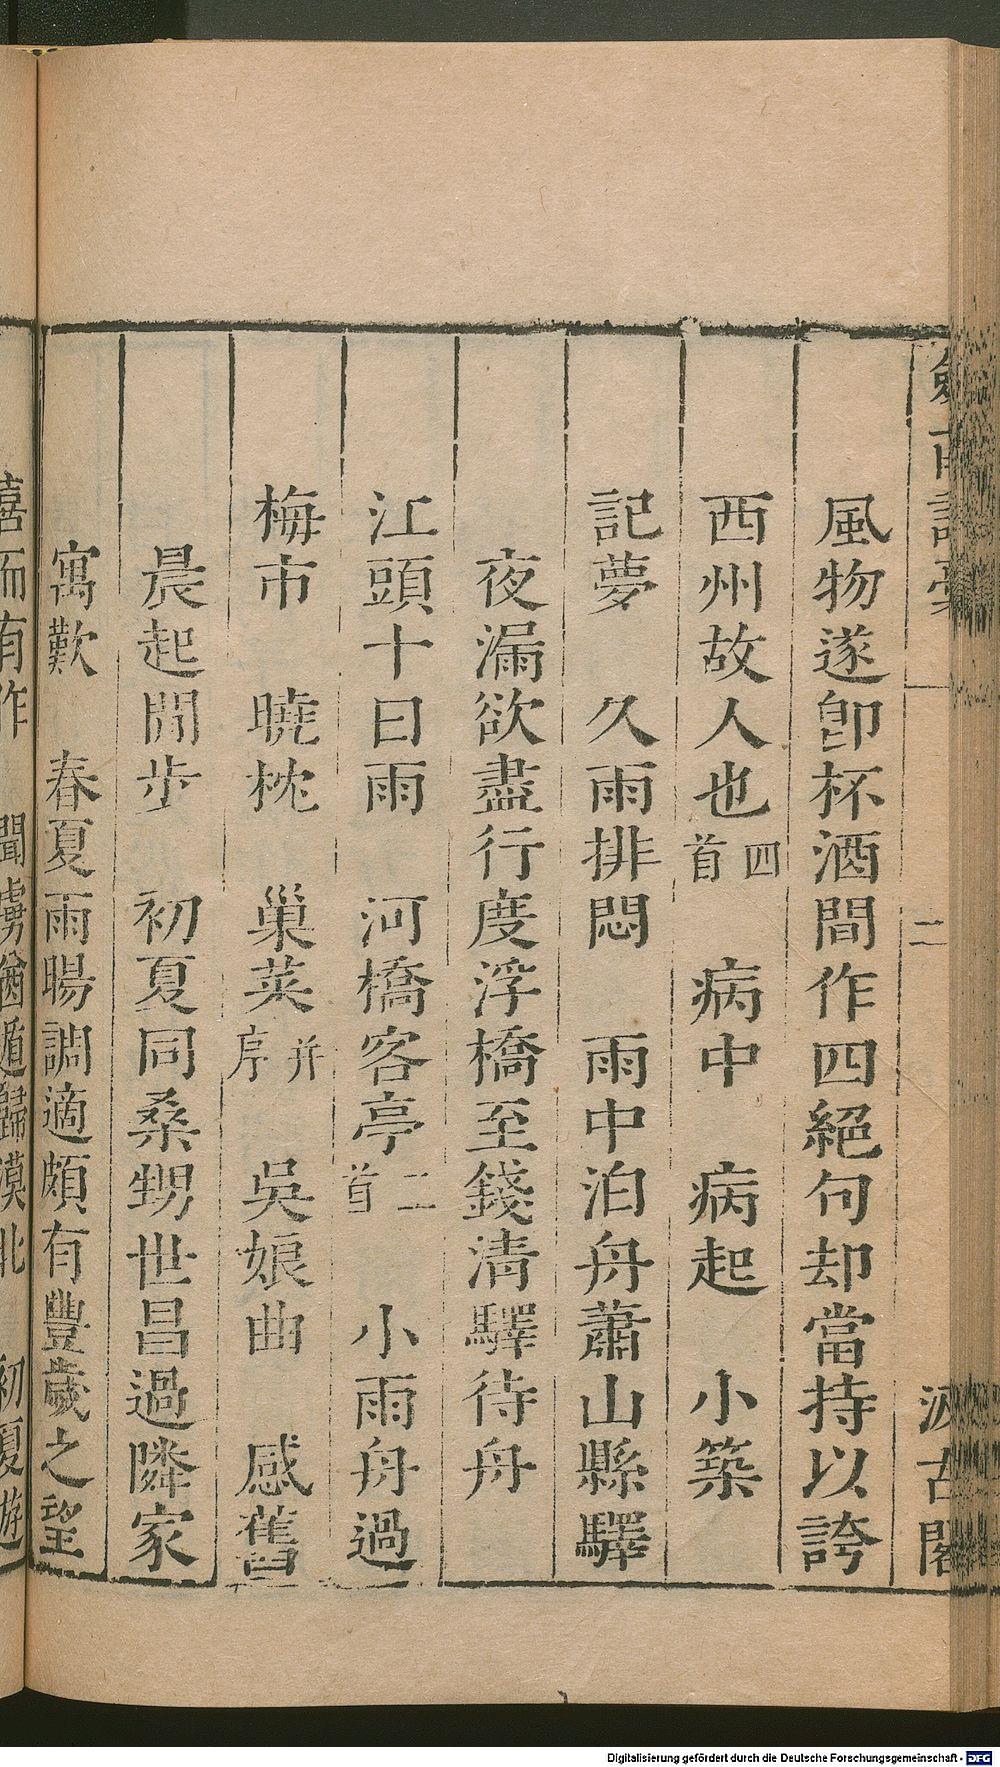 劒南詩稾 二 汲古閣
風物遂卽杯酒間作四絕句却當持以誇
西州故人也四首 病中 病起 小築
記夢 久雨排悶 雨中泊舟蕭山縣驛
夜漏欲盡行度浮橋至錢淸驛待舟
江頭十日雨 河橋客亭二首 小雨舟過
梅市 曉枕 巢菜并序 吳娘曲 感舊
晨起閒步 初夏同桑甥世昌過隣家
寓歎 春夏雨暘調適頗有豐歲之望
喜而有作 聞虜酋遁歸漠北 初夏遊
Digitalisierung gefördert durch die Deutsche Forschungsgemeinschaft - DFG